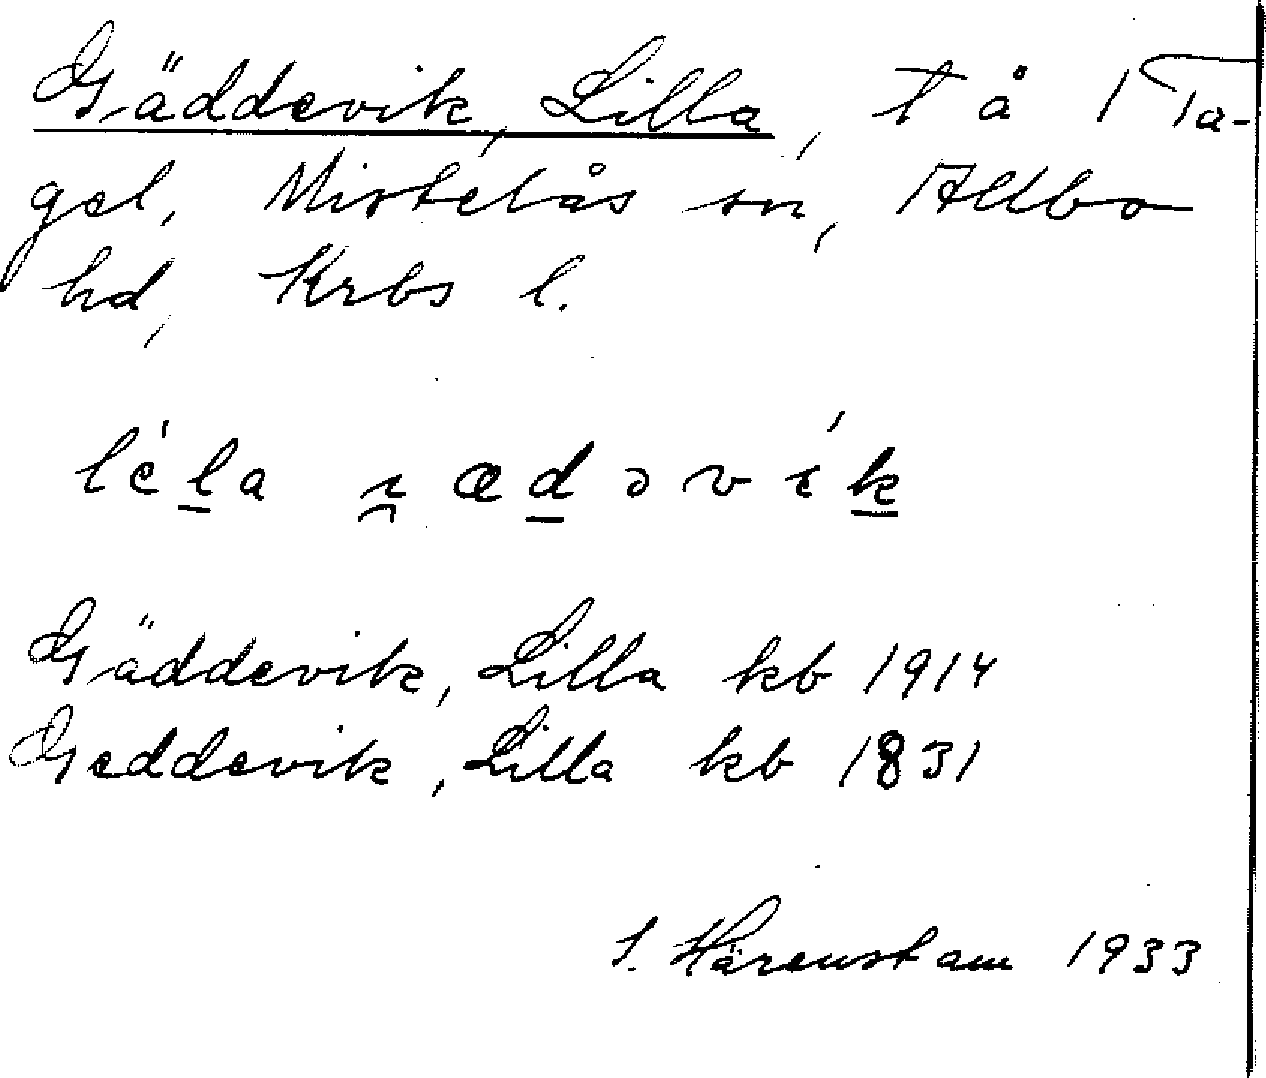 Gäddevik, Lilla, t å 1 Ta-
gel, Mistelås sn, Allbo
hd, Krbs l.
léla ɪ̯ædəvík
Gäddevik, Lilla kb 1914
Geddevik, Lilla kb 1831
S. Härenstam 1933